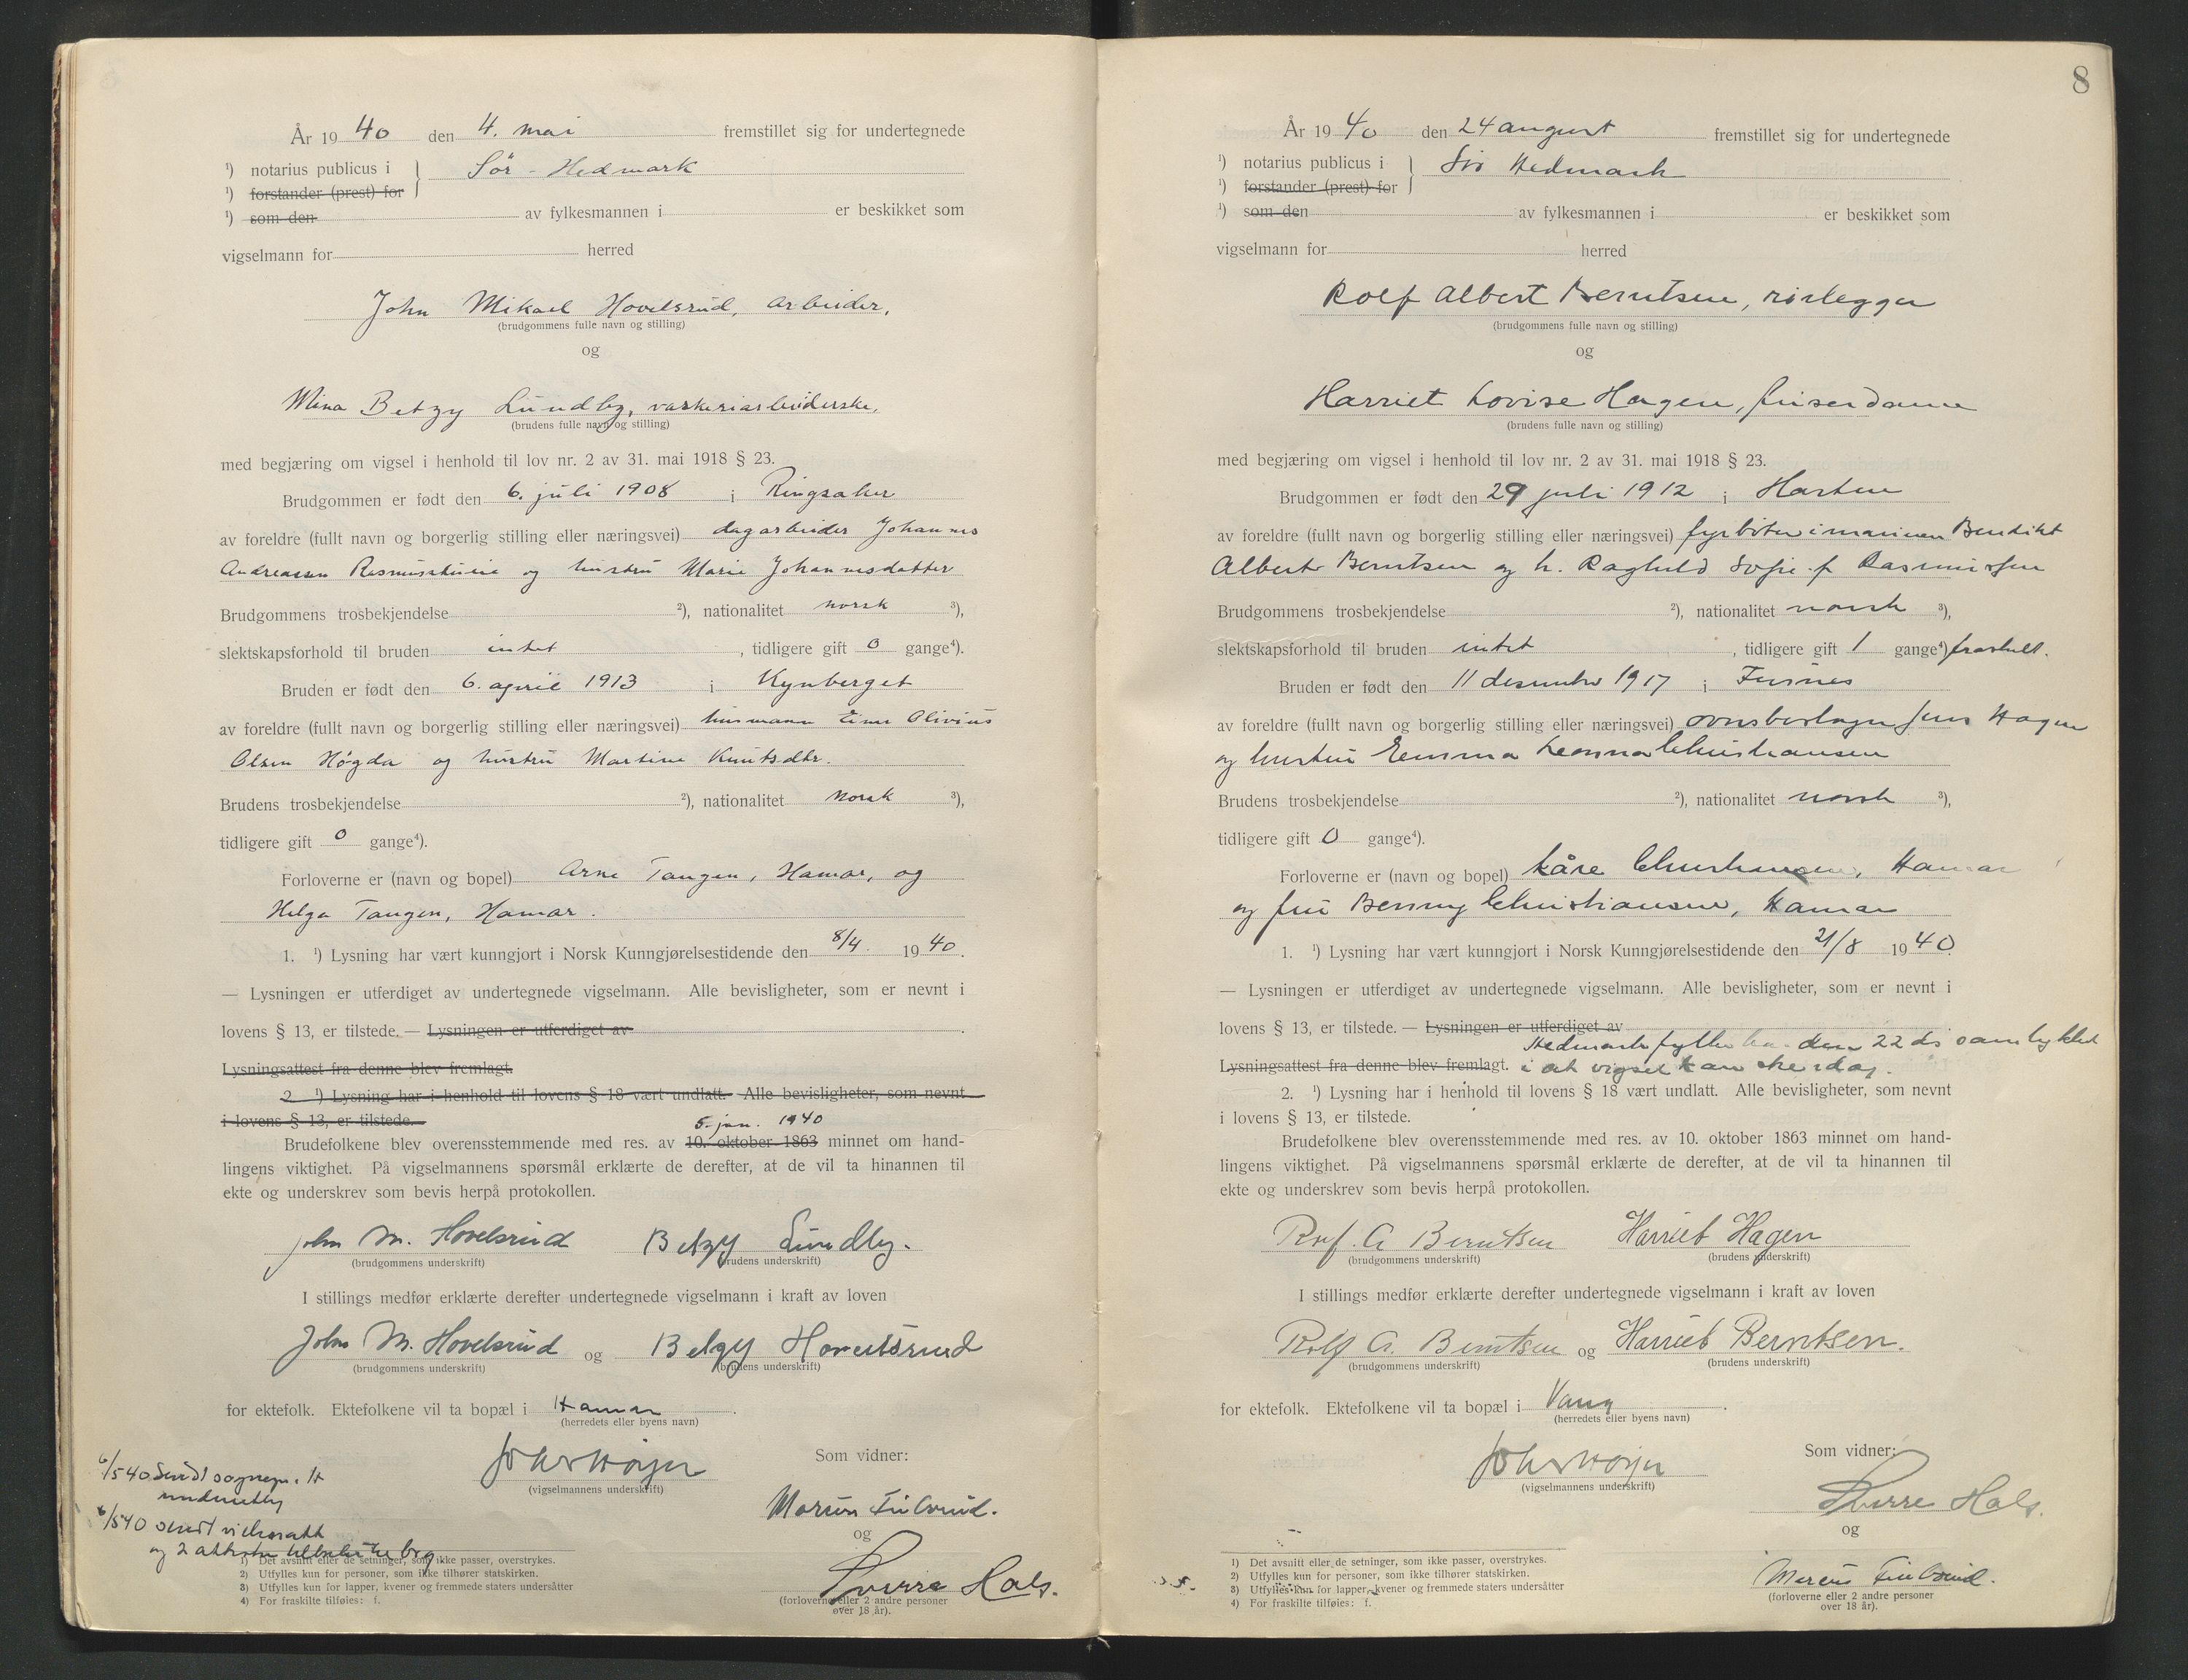 År 19 40 den 4. mai fremstillet sig for undertegnede
¹) notarius publicus i } Sör-Hedmark
¹) forstander (prest) for
¹) som den av fylkesmannen i er beskikket som
vigselmann for herred
John Mikael Hovelsrud, arbeider,
(brudgommens fulle navn og stilling)
og
Mina Betzy Lundby, vaskeriarbeiderske,
(brudens fulle navn og stilling)
med begjæring om vigsel i henhold til lov nr. 2 av 31. mai 1918 § 23.
Brudgommen er født den 6. juli 1908 i Ringsaker
av foreldre (fullt navn og borgerlig stilling eller næringsvei) dagarbeider Johannes
Andreassen og hustru Marie Johannesdatter
Brudgommens trosbekjendelse ²), nationalitet norsk ³),
slektskapsforhold til bruden intet , tidligere gift 0 gange⁴).
Bruden er født den 6. april 1913 i Kynberget
av foreldre (fullt navn og borgerlig stilling eller næringsvei) husmann Einar Olivius
Olsen Høgda og hustru Martine Knutsdtr.
Brudens trosbekjendelse ²), nationalitet norsk ³),
tidligere gift 0 gange⁴).
Forloverne er (navn og bopel) Arne Tangen, Hamar, og
Helga Tangen, Hamar.
1. ¹) Lysning har vært kunngjort i Norsk Kunngjørelsestidende den 8/4. 19 40.
— Lysningen er utferdiget av undertegnede vigselmann. Alle bevisligheter, som er nevnt i
lovens § 13, er tilstede. — Lysningen er utferdiget av .
Lysningsattest fra denne blev fremlagt.
2. ¹) Lysning har i henhold til lovens § 18 vært undlatt. Alle bevisligheter, som nevnt
i lovens § 13, er tilstede.
5. jan. 1940
Brudefolkene blev overensstemmende med res. av 10. oktober 1863 minnet om hand-
lingens viktighet. På vigselmannens spørsmål erklærte de derefter, at de vil ta hinannen til
ekte og underskrev som bevis herpå protokollen.
John M. Hovelsrud Betzy Lundby.
(brudgommens underskrift) (brudens underskrift)
I stillings medfør erklærte derefter undertegnede vigselmann i kraft av loven
John M. Hovelsrud og Betzy Hovelsrud
(brudgommens underskrift) (brudens underskrift)
for ektefolk. Ektefolkene vil ta bopæl i Hamar .
(herredets eller byens navn)
Som vidner:
6/5 40 Sendt sognepr. H
(vigselmannens underskrift)
6/5 40 sendt
og 2 attester
og
Sverre Hals.
(forloverne eller 2 andre personer
over 18 år).
1) Det avsnitt eller de setninger, som ikke passer, overstrykes.
2) Utfylles kun for personer, som ikke tilhører statskirken.
3) Utfylles kun for lapper, kvener og fremmede staters undersåtter
4) For fraskilte tilføies: f.
8
År 19 40 den 24 august fremstillet sig for undertegnede
¹) notarius publicus i } Sør Hedmark
¹) forstander (prest) for
¹) som den av fylkesmannen i er beskikket som
vigselmann for herred
Rolf Albert Berntsen, rørlegger
(brudgommens fulle navn og stilling)
og
Harriet Lovise Hagen, friserdame
(brudens fulle navn og stilling)
med begjæring om vigsel i henhold til lov nr. 2 av 31. mai 1918 § 23.
Brudgommen er født den 29 juli 1912 i Horten
av foreldre (fullt navn og borgerlig stilling eller næringsvei) fyrbøter i marinen Bendikt
Albert Berntsen og h. Raghild Sofie f. Rasmussen
Brudgommens trosbekjendelse ²), nationalitet norsk ³),
slektskapsforhold til bruden intet , tidligere gift 1 gange⁴) fraskilt.
Bruden er født den 11 desember 1917 i Furnes
av foreldre (fullt navn og borgerlig stilling eller næringsvei) Jens Hagen
og hustru Emma Leonna Christiansen
Brudens trosbekjendelse ²), nationalitet norsk ³),
tidligere gift 0 gange⁴).
Forloverne er (navn og bopel) Kåre Christiansen, Hamar
og fru Benny Christiansen, Hamar
1. ¹) Lysning har vært kunngjort i Norsk Kunngjørelsestidende den 21/8 19 40.
— Lysningen er utferdiget av undertegnede vigselmann. Alle bevisligheter, som er nevnt i
lovens § 13, er tilstede. — Lysningen er utferdiget av
Hedmark fylke har den 22 ds samtykket
Lysningsattest fra denne blev fremlagt. i at vigsel kan skje idag.
2. ¹) Lysning har i henhold til lovens § 18 vært undlatt. Alle bevisligheter, som nevnt
i lovens § 13, er tilstede.
Brudefolkene blev overensstemmende med res. av 10. oktober 1863 minnet om hand-
lingens viktighet. På vigselmannens spørsmål erklærte de derefter, at de vil ta hinannen til
ekte og underskrev som bevis herpå protokollen.
Rolf. A Berntsen Harriet Hagen
(brudgommens underskrift) (brudens underskrift)
I stillings medfør erklærte derefter undertegnede vigselmann i kraft av loven
Rolf A. Berntsen og Harriet Berntsen.
(brudgommens underskrift) (brudens underskrift)
for ektefolk. Ektefolkene vil ta bopæl i Vang .
(herredets eller byens navn)
Som vidner:
(vigselmannens underskrift)
Sverre Hals.
og
(forloverne eller 2 andre personer
over 18 år).
1) Det avsnitt eller de setninger, som ikke passer, overstrykes.
2) Utfylles kun for personer, som ikke tilhører statskirken.
3) Utfylles kun for lapper, kvener og fremmede staters undersåtter
4) For fraskilte tilføies: f.